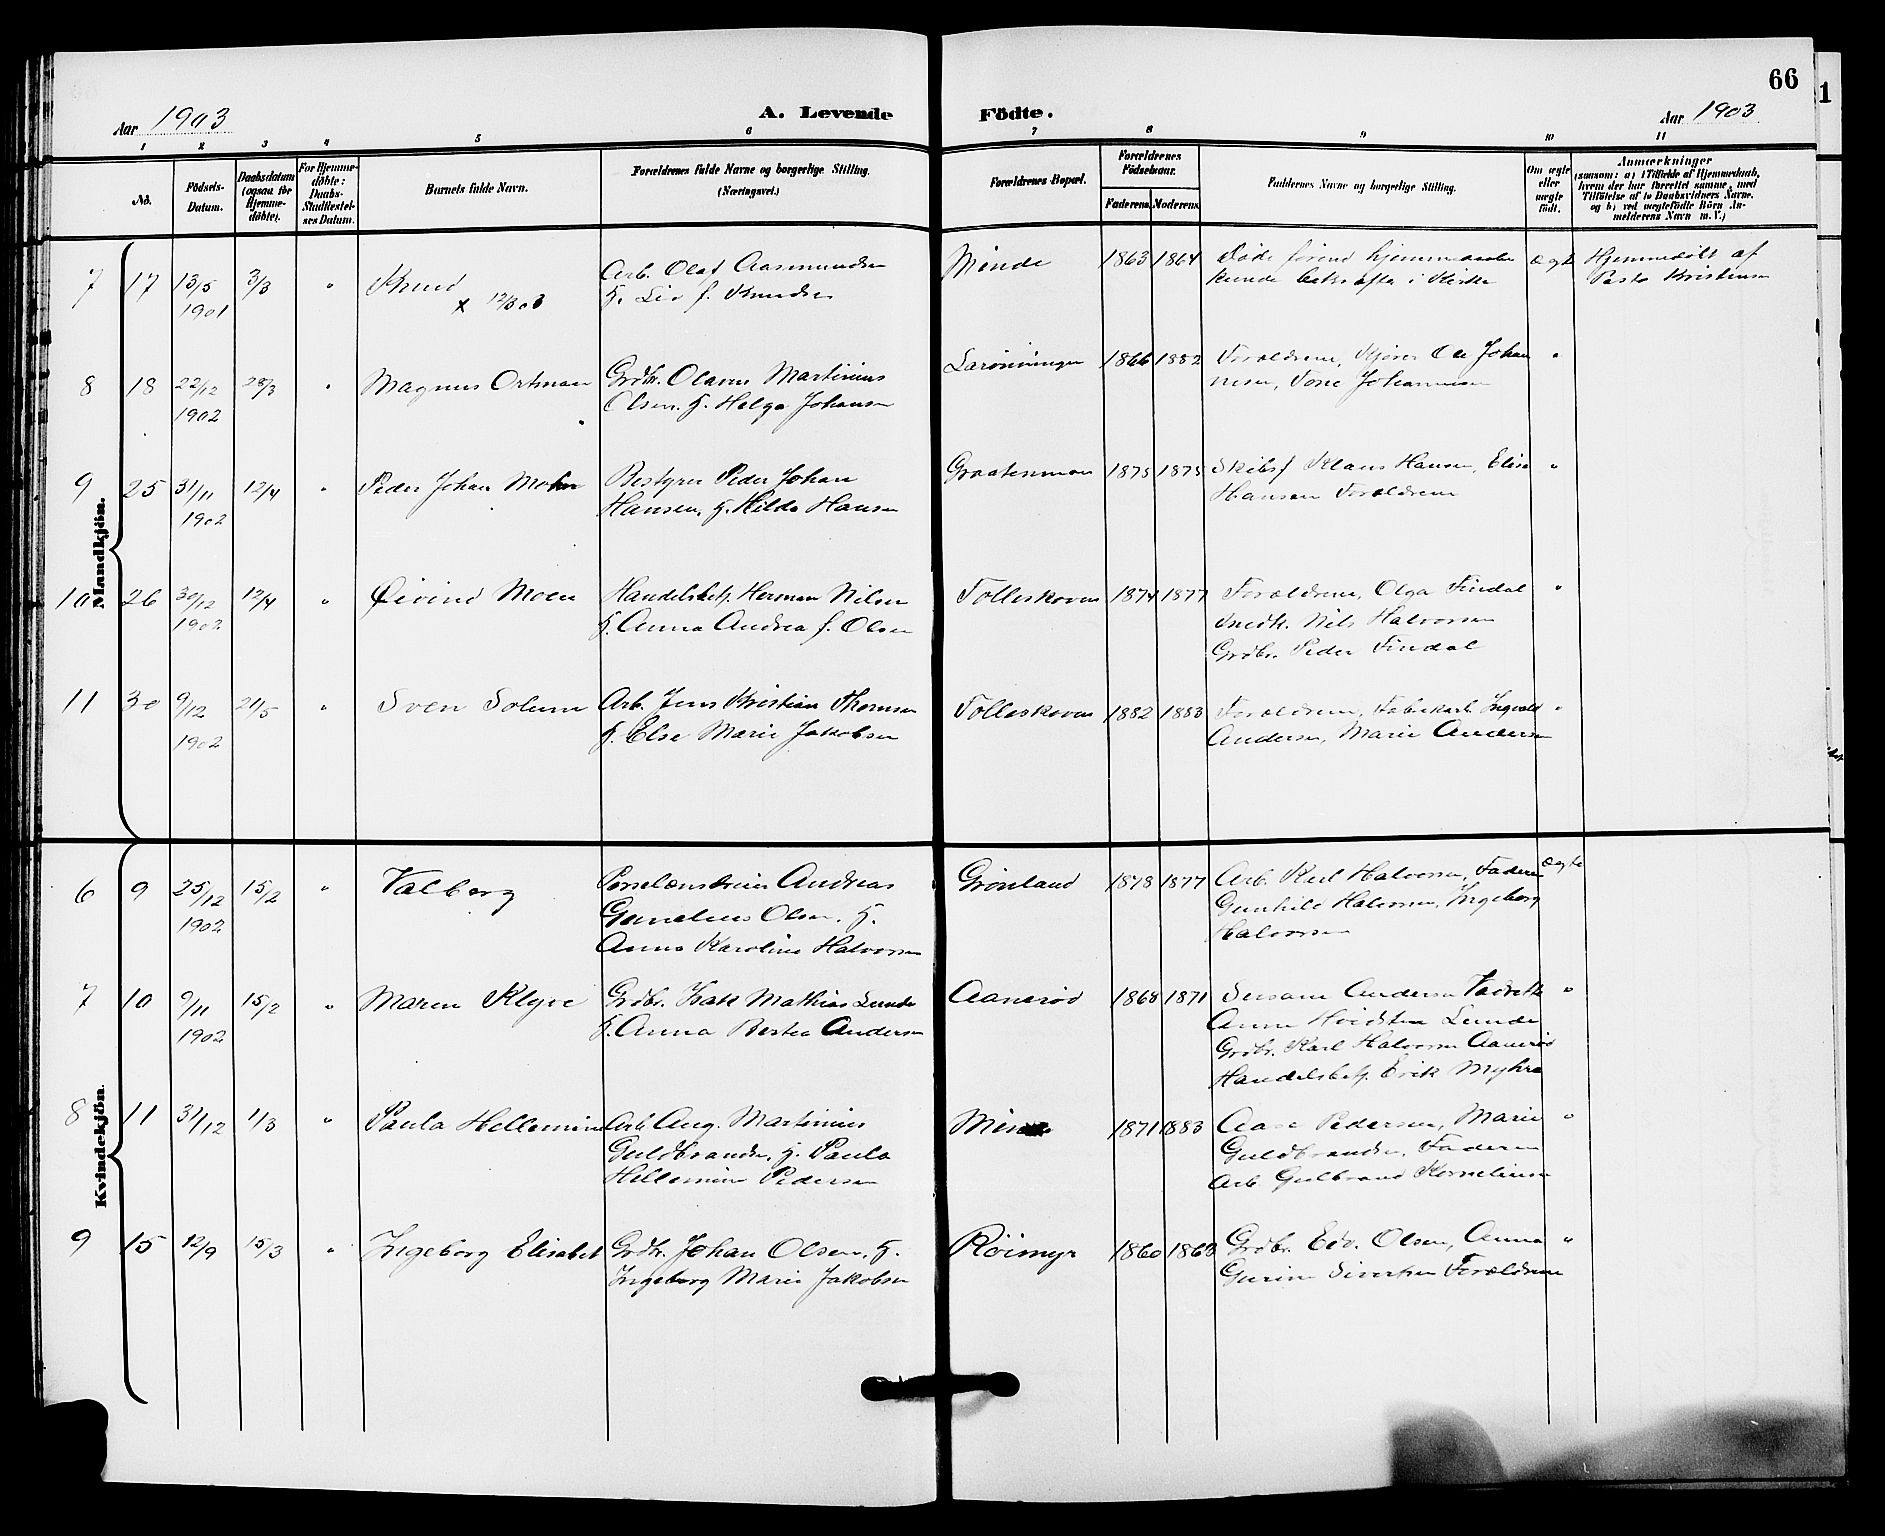 66
1
Aar 1903
A. Levende Födte.
Aar 1903
1 2 3 4 5 6 7 8 9 10 11
No.
Födsels-Datum.
Daabsdatum (ogsaa for Hjemmedöbte).
For Hjemmedöbte: Daabs-Stadfæstelses Datum.
Barnets fulde Navn.
Forældrenes fulde Navne og borgerlige Stilling. (Næringsvei.)
Forældrenes Bopæl.
Forældrenes Födselsaar.
Faderens. Moderens.
Faddernes Navne og borgerlige Stilling.
Om ægte eller uægte född.
Anmærkninger
(saasom: a) i Tilfælde af Hjemmedaab,
hvem der har forrettet samme, med
Tilföielse af to Daabsvidners Navne,
og b) ved uægtefödte Börn An-
melderens Navn m. V.)
Mandkjön.
7 17 13/5 1901 3/3 " Knud
x 12/3 03
Arb. Olaf Aasmundsen
H. Liv f. Knudsen
Minde 1863 1864
Döde förend hjemmedaaben
kunde bekræftes i Kirke
Ægte
Hjemmedöbt af
Pastor Kristensen
8 18 22/12 1902 28/3 " Magnus Ortman
Grdbr. Olavus Martinius
Olsen. H. Helga Johansen
1866 1882
Forældrene, Kjörer Ole Johan
nesen, Tone Johannesen
"
9 25 31/11 1902 12/4 " Peder Johan
Bestyrer Peder Johan
Hansen, H. Hilda Hansen
Graatenmoen 1875 1875
Skibsf Klaus Hansen, Elise
Hansen Forældrene
"
10 26 30/12 1902 12/4 " Öivind Moen
Handelsbetj. Herman Nilsen
H. Anna Andrea f. Olsen
Tolleskoven 1874 1877
Forældrene, Olga Findal
Snedk. Nils Halvorsen
Grdbr. Peder Findal
"
11 30 9/12 1902 21/5 " Sven Solum
Arb. Jens Kristian Thomsen
H. Else Marie Jakobsen
Tolleskoven 1882 1883
Forældrene, Fabrikarb. Ingvald
Andersen, Marie Andersen
"
Kvindekjön.
6 9 25/12 1902 15/2 " Valborg
Porselænsdreier Andreas
Olsen. H.
Anna Karoline Halvorsen
Grönland 1878 1877
Arb. Karl Halvorsen, Faderen
Gunhild Halvorsen, Ingeborg
Halvorsen
Ægte
7 10 9/11 1902 15/2 " Maren Klyve
Grdbr. Isak Mathias Lunde
H. Anna Bertea Andersen
Aanerød 1868 1871
Susane Andersen
Anne Hvidsten Lunde
Grdbr. Karl Halvorsen Aanerød
Handelsbetj. Erik Myhre
"
8 11 31/12 1/3 " Paula Hellemine
Arb. Aug. Martinius
Guldbrandsen, H. Paula
Hellemine Pedersen
1871 1883
Aase Pedersen, Marie
Guldbrandsen, Faderen
Arb. Gulbrand Kornelius
"
9 15 12/9 15/3 " Ingeborg Elisabet
Grdbr. Johan Olsen, H.
Ingeborg Marie Jakobsen
Röimyr 1860 1862
Grdbr. Edv. Olsen, Anna
Gurine Sivertsen Forældrene
"